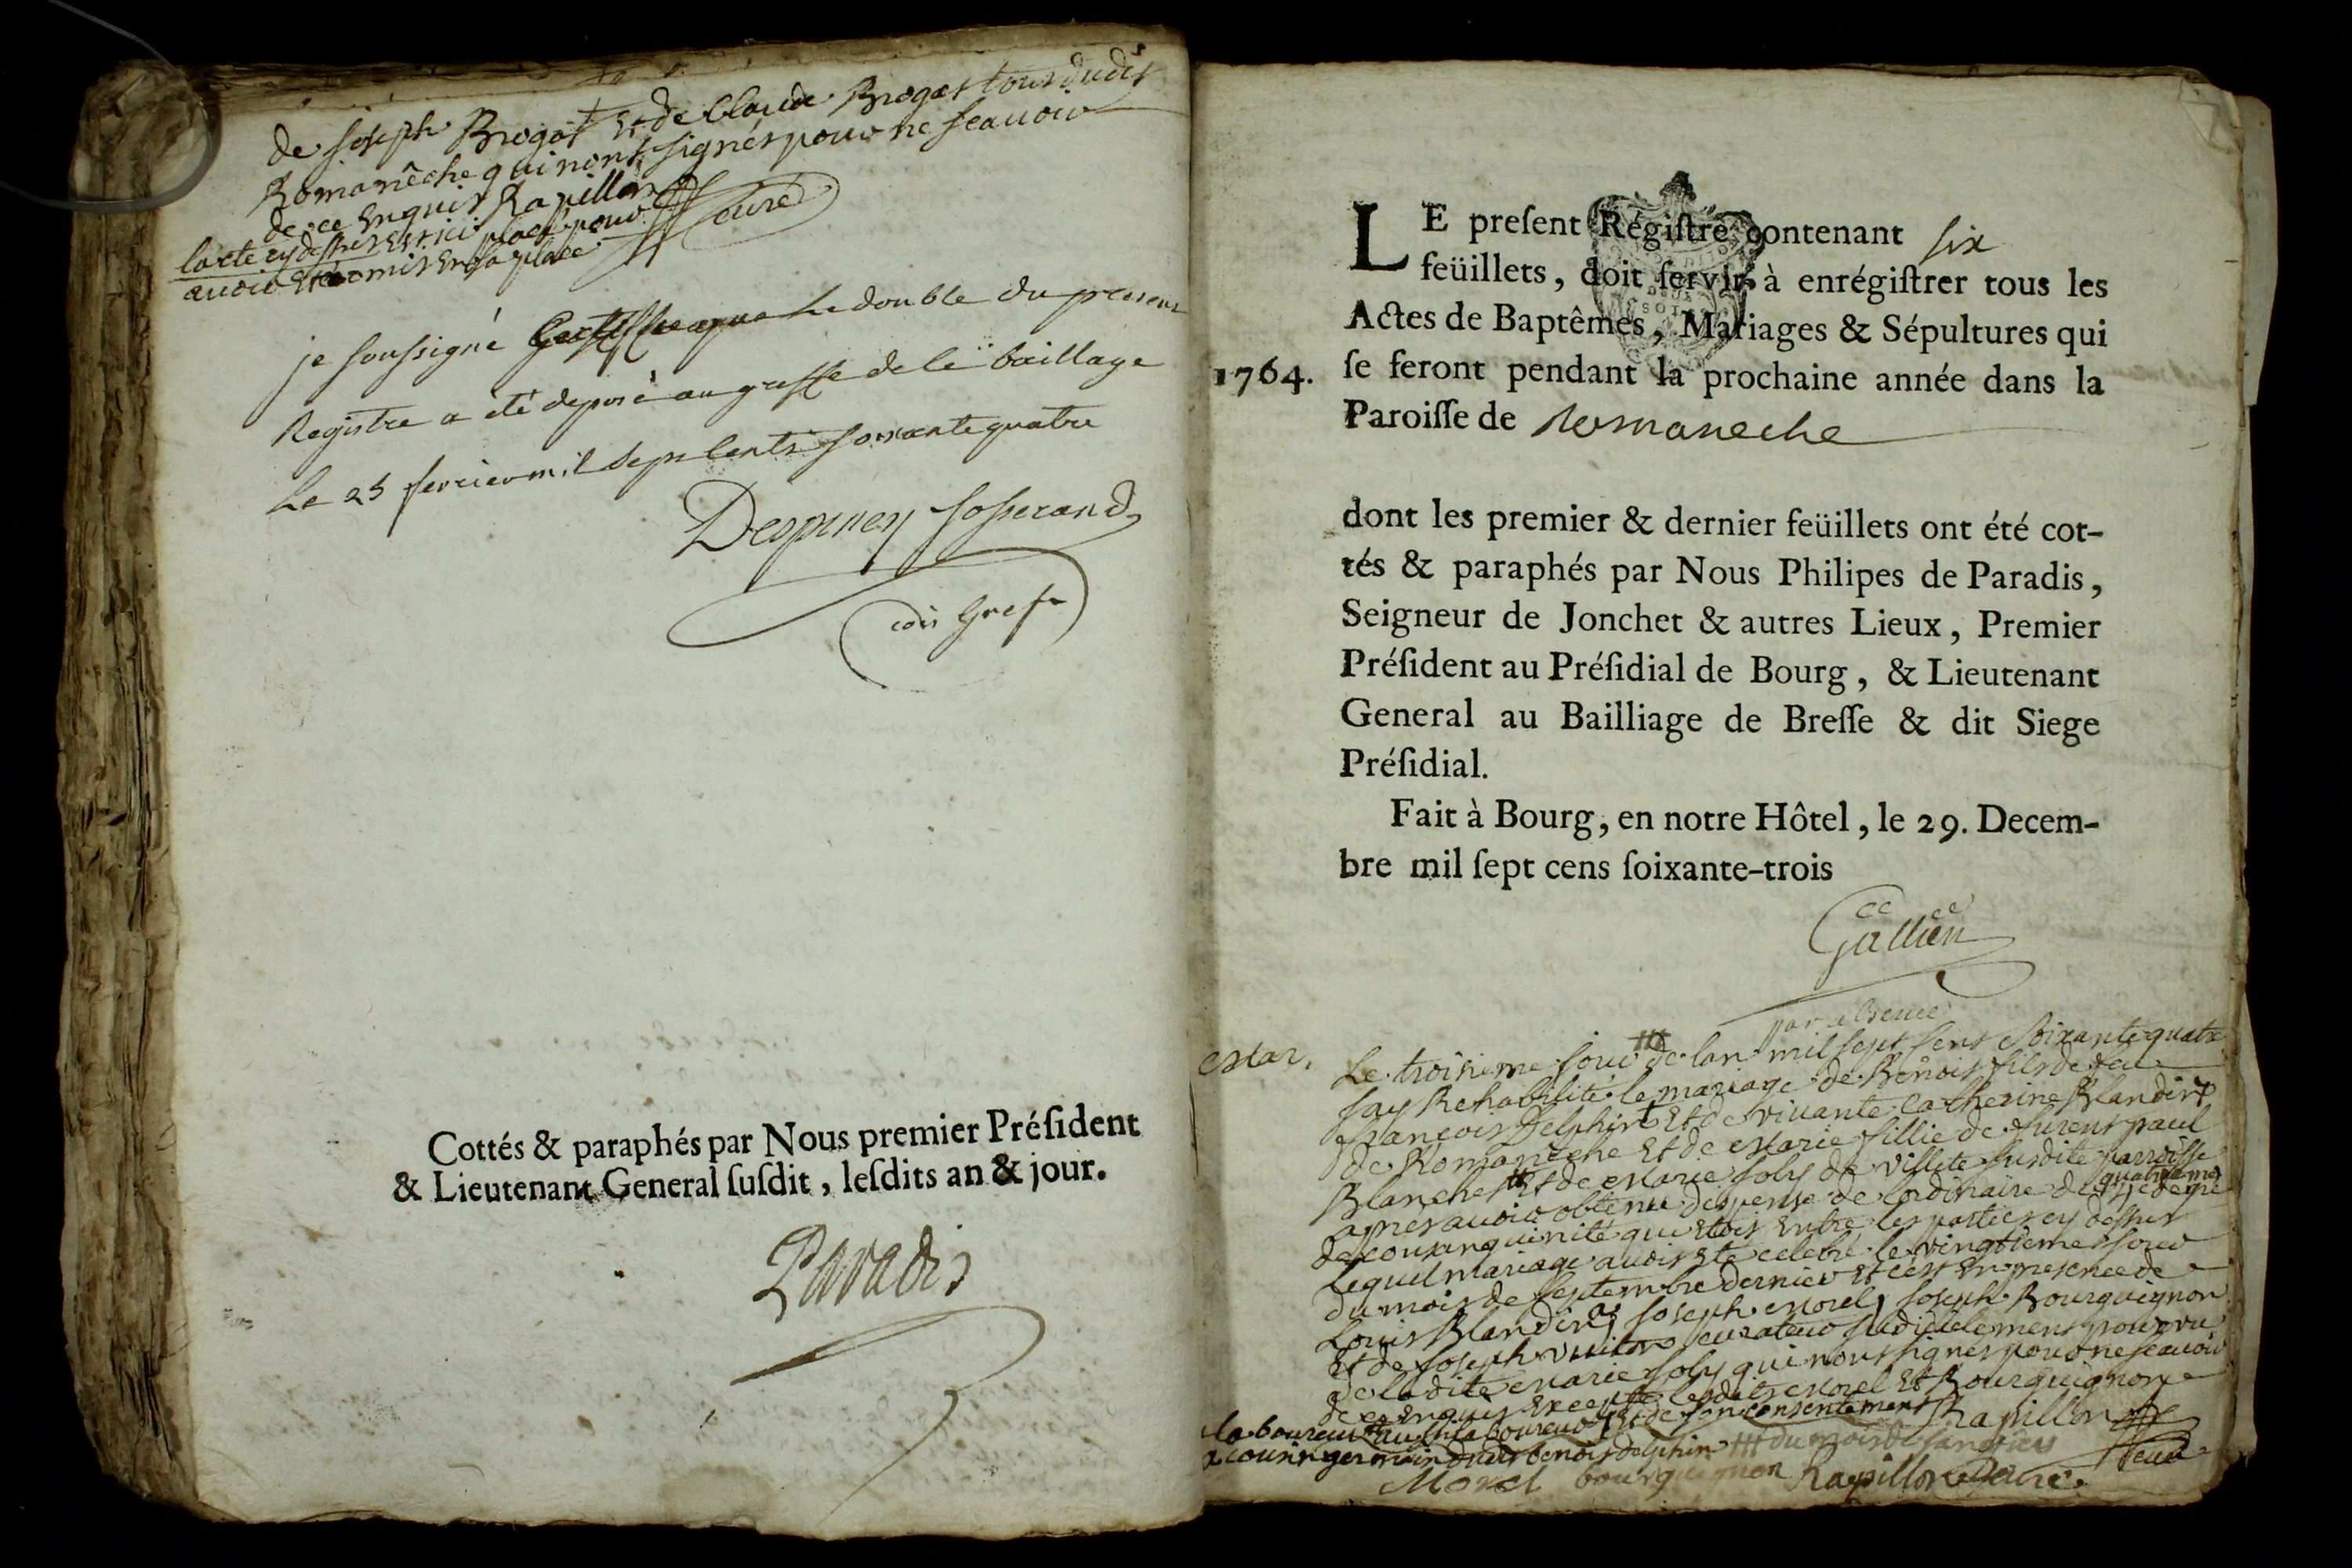 de Joseph Brogat Et de Claude Brogat tous dudit
Romanêche qui n'ont signés pour ne scauoir
de ce Enquis Rapillon Curé
lacte cy dessus Est ici placé pour
auoir Eté omis En sa place
je soussigné Certiffie que Le double du present
Registre a été deposé au greffe de le bailliage
Le 25 fevrier mil sept cents soixante quatre
Despiney Josserand
Cottés & paraphés par Nous premier Préſident
& Lieutenant General ſuſdit, leſdits an & jour.
Paradis
LE preſent Régiſtre contenant six
feüillets, doit ſervir à enrégiſtrer tous les
Actes de Baptêmes, Mariages & Sépultures qui
1764. ſe feront pendant la prochaine année dans la
Paroiſſe de Romaneche
dont les premier & dernier feüillets ont été cot-
tés & paraphés par Nous Philipes de Paradis,
Seigneur de Jonchet & autres Lieux, Premier
Préſident au Préſidial de Bourg, & Lieutenant
General au Bailliage de Breſſe & dit Siege
Préſidial.
Fait à Bourg, en notre Hôtel, le 29. Decem-
bre mil ſept cens ſoixante-trois
Gallien
par absence
Mar. Le troisieme jour de lan mil sept sent soixante quatre
jay Rehabilité le mariage de Benoit fils de feu
francois Delphin Et de vivante catherine Blandin
de Romanêche Et de Marie fillie de furent paul
Blanchet Et de Marie Joly de Villete susdite parroisse
apres auoir obtenu dispense de Lordinaire du quatrieme degré
de consanguinité qui Etoit Entre les parties cy dessus
Lequel mariage auoit Eté celebré le vingtieme jour
du mois de septembre dernier Et cest En presence de
Louis Blandin, Joseph Morel, Joseph Bourguignon
Et de Joseph curateur judiciellement pourvu
de ladite Marie Joly qui n'ont signés pour ne scauoir
de ce Enquis Excepté lesdits Morel Et Bourguignon
laboureur Et de son consentement Rapillon
cousin germain dudit benoit delphin ### du mois de janvier Curé
Morel bourguignon Rapillon Curé.